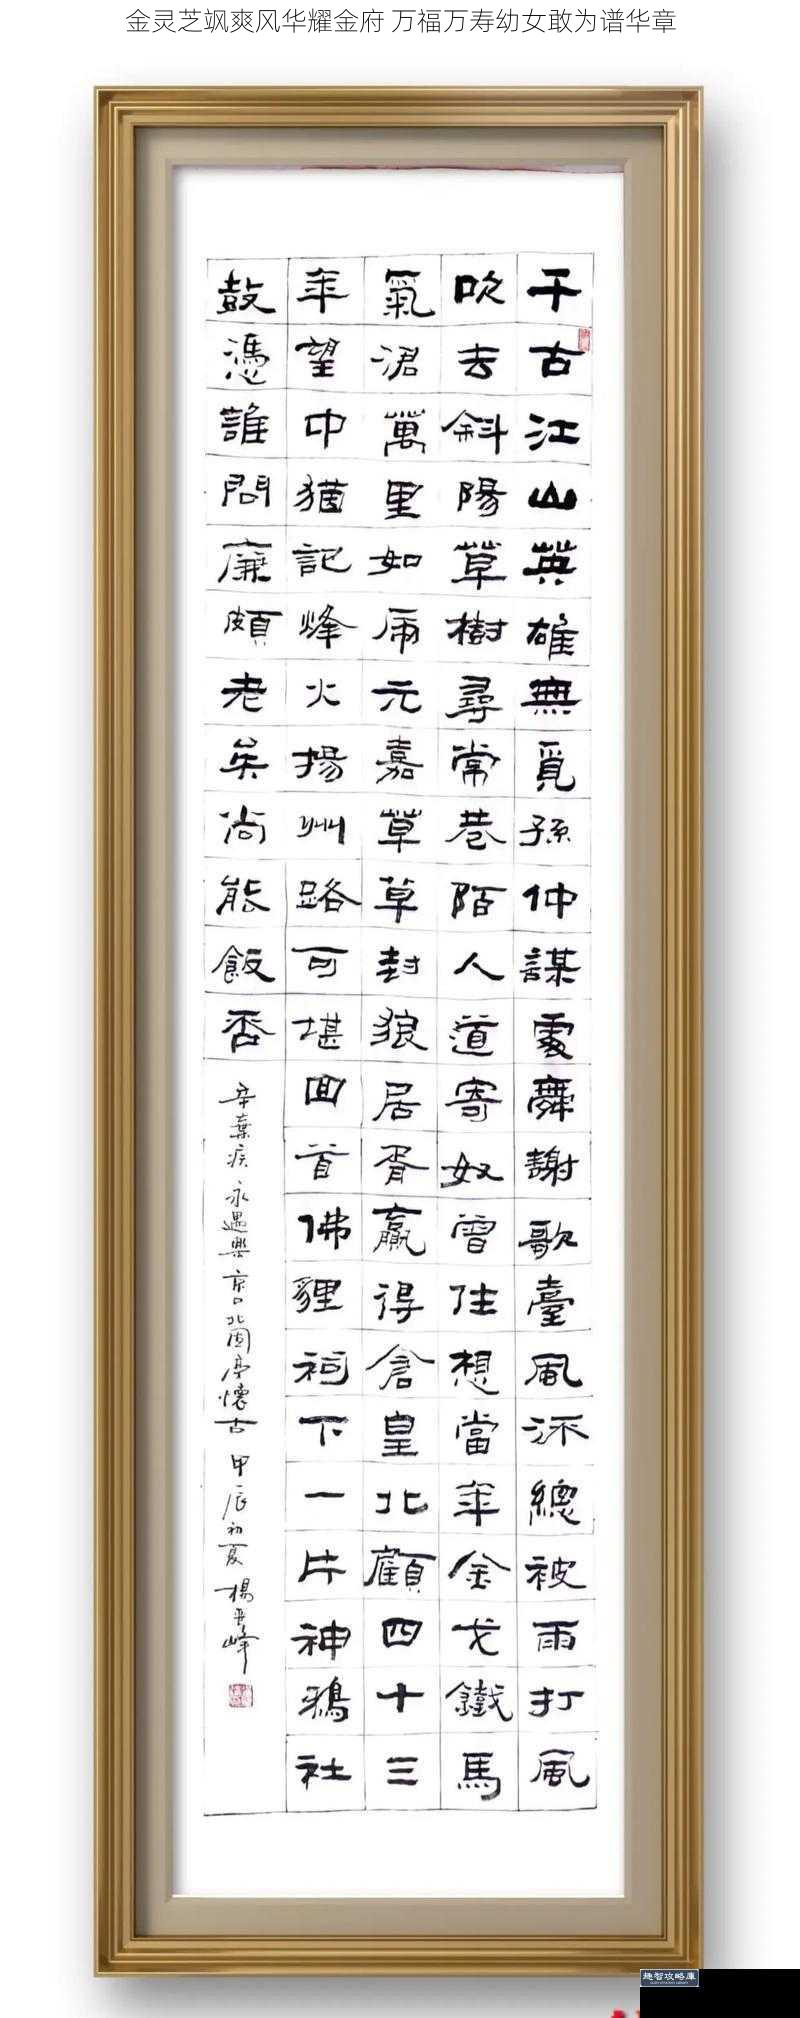 金灵芝飒爽风华耀金府 万福万寿幼女敢为谱华章
千古江山英雄無覓孫仲謀處舞謝歌臺風流總被雨打風
吹去斜陽草樹尋常巷陌人道寄奴曾住想當年金戈鐵馬
氣涒萬里如虎元嘉草草封狼居胥贏得倉皇北顧四十三
年望中猶記烽火揚州路可堪回首佛貍祠下一片神鴉社
鼓憑誰問廉頗老矣尚能飯否
辛棄疾永遇樂京口北固亭懷古 甲辰初夏 楊峰
趣智攻略庫